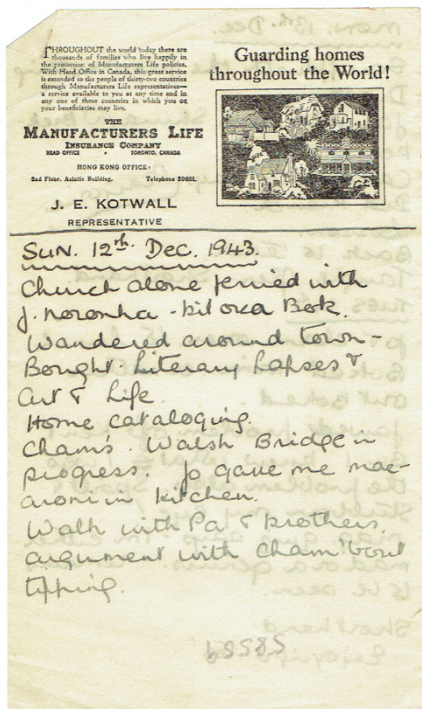 THROUGHOUT the world today there are
thousands of families who live happily in
the protection of Manufacturers Life policies.
With Head Office in Canada, this great service
is extended to the people of thirty-two countries
through Manufacturers Life representatives—
a service available to you at any time and in
any one of these countries in which you or
your beneficiaries may live.
THE
MANUFACTURERS LIFE
INSURANCE COMPANY
HEAD OFFICE • TORONTO, CANADA
HONG KONG OFFICE:
2nd Floor, Asiatic Building. Telephone 20601.
J. E. KOTWALL
REPRESENTATIVE
Guarding homes
throughout the World!
SUN. 12th. Dec. 1943.
Church alone ferried with
J. Noronha - Bok.
Wandered around town -
Bought Literary Lapses &
Art & Life.
Home cataloging.
Cham's. Walsh Bridge in
progress. Jo gave me mac-
aroni in kitchen.
Walk with Pa & brothers,
argument with Cham 'bout
tipping.